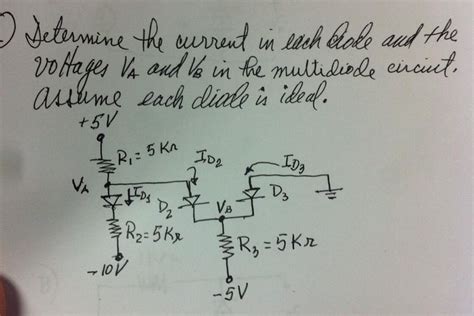 Determine the current in each diode and the
voltages VA and VB in the multidiode circuit.
Assume each diode is ideal.
+5V
R1 = 5KΩ
ID2
ID3
VA
ID1
D2
VB
D3
R2=5KΩ
R3 = 5KΩ
-10V
-5V